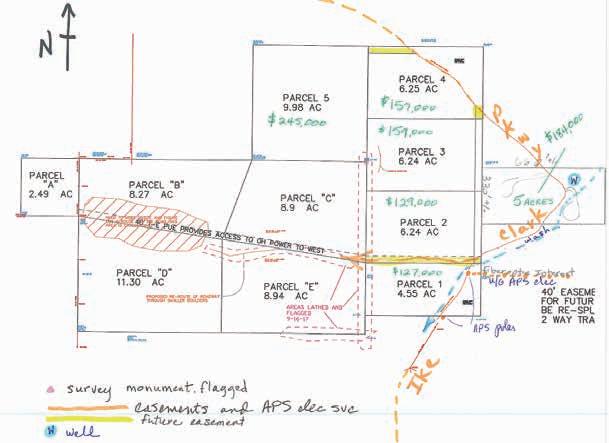 N
PARCEL 4
6.25 AC
$157,000
PARCEL 5
9.98 AC
$245,000
Pkwy
$184,000
$159,000
PARCEL 3
6.24 AC
PARCEL
"A"
2.49 AC
PARCEL "B"
8.27 AC
PARCEL "C"
8.9 AC
$129,000
PARCEL 2
6.24 AC
W
5 ACRES
Clark
wash
PUE PROVIDES ACCESS TO OH POWER TO WEST
PARCEL "D"
11.30 AC
PROPOSED RE-ROUTE OF ROADWAY
THROUGH SMALLER BOULDERS
PARCEL "E"
8.94 AC
AREAS LATHED AND
FLAGGED
9-16-17
$127,000
PARCEL 1
4.55 AC
Fiberoptic Internet
U/G APS elec
APS poles
40' EASEME
FOR FUTUR
BE RE-SPL
2 WAY TRA
Ike
survey monument, flagged
easements and APS elec svc
future easement
W well